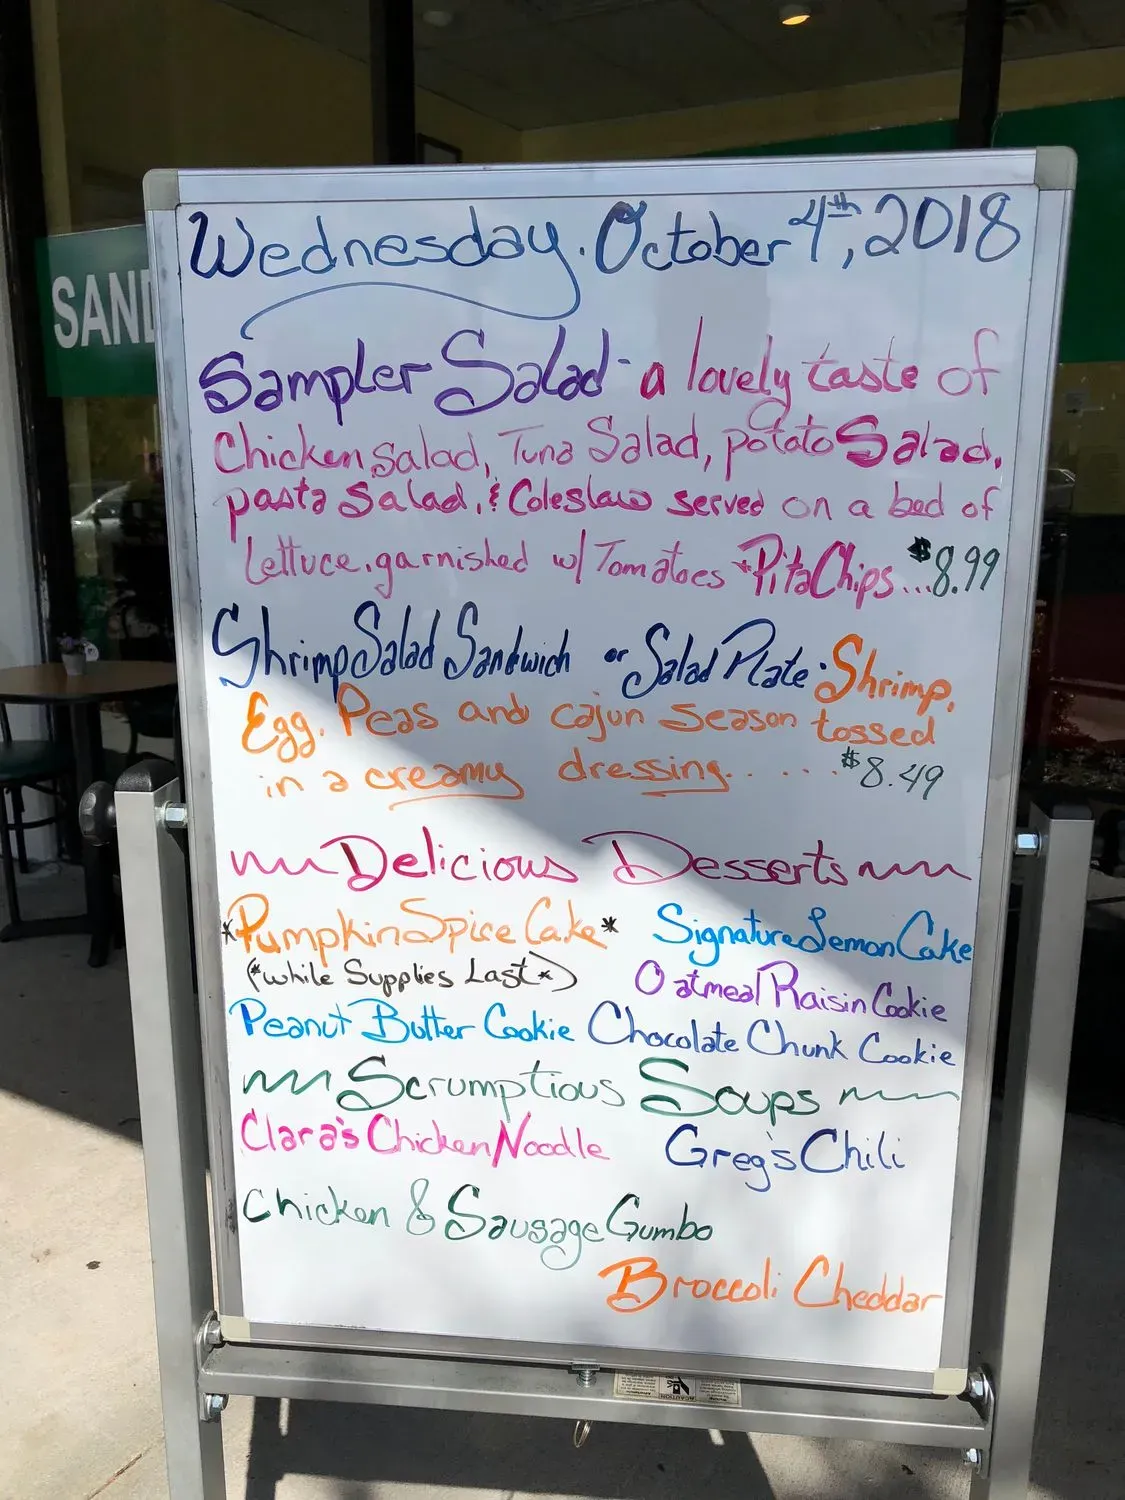 SAND
Wednesday. October 4th, 2018
Sampler Salad - a lovely taste of
Chicken Salad, Tuna Salad, potato Salad,
pasta Salad, & Coleslaw served on a bed of
Lettuce, garnished w/ Tomatoes *Pita Chips... $8.99
Shrimp Salad Sandwich or Salad Plate · Shrimp,
Egg, Peas and cajun season tossed
in a creamy dressing...... $8.49
Delicious Desserts
*Pumpkin Spice Cake* Signature Lemon Cake
(*while Supplies Last*) Oatmeal Raisin Cookie
Peanut Butter Cookie Chocolate Chunk Cookie
Scrumptious Soups
Clara's Chicken Noodle Greg's Chili
Chicken & Sausage Gumbo
Broccoli Cheddar
CAUTION